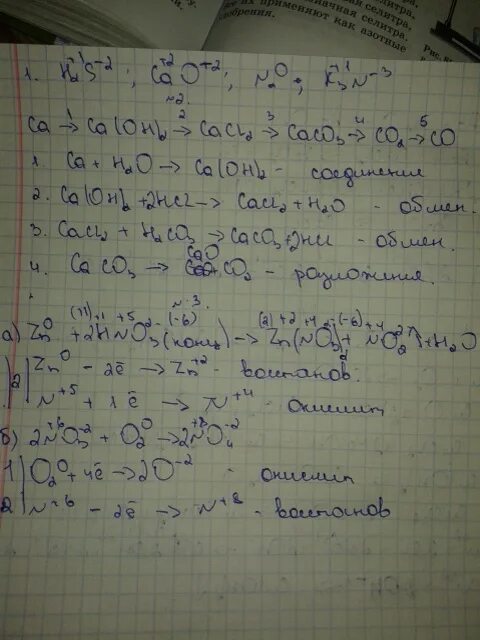 селитра,
иачная селитра,
их применяют как азотные
обрения.
Рис.
1. H₂⁺¹S⁻²; Ca⁺²O⁺²; N₂⁰; K₃⁺¹N⁻³
n2.
Ca →¹ Ca(OH)₂ →² CaCl₂ →³ CaCO₃ →⁴ CO₂ →⁵ CO
1. Ca + H₂O → Ca(OH)₂ - соединение
2. Ca(OH)₂ + 2HCl → CaCl₂ + H₂O - обмен.
3. CaCl₂ + H₂CO₃ → CaCO₃ + 2HCl - обмен.
4. CaCO₃ → CaO + CO₂ - разложение.
n-3.
а) Zn⁰ + 2HNO₃ (конц) → Zn(NO₃)₂ + NO₂ + H₂O
Zn⁰ - 2ē → Zn⁺² - востанов.
2| N⁺⁵ + 1ē → N⁺⁴ - окислит
б) 2N⁺⁶O₃⁻² + O₂⁰ → 2N⁺⁸O₄⁻²
1| O₂⁰ + 4ē → 2O⁻² - окислит
2| N⁺⁶ - 2ē → N⁺⁸ - востанов